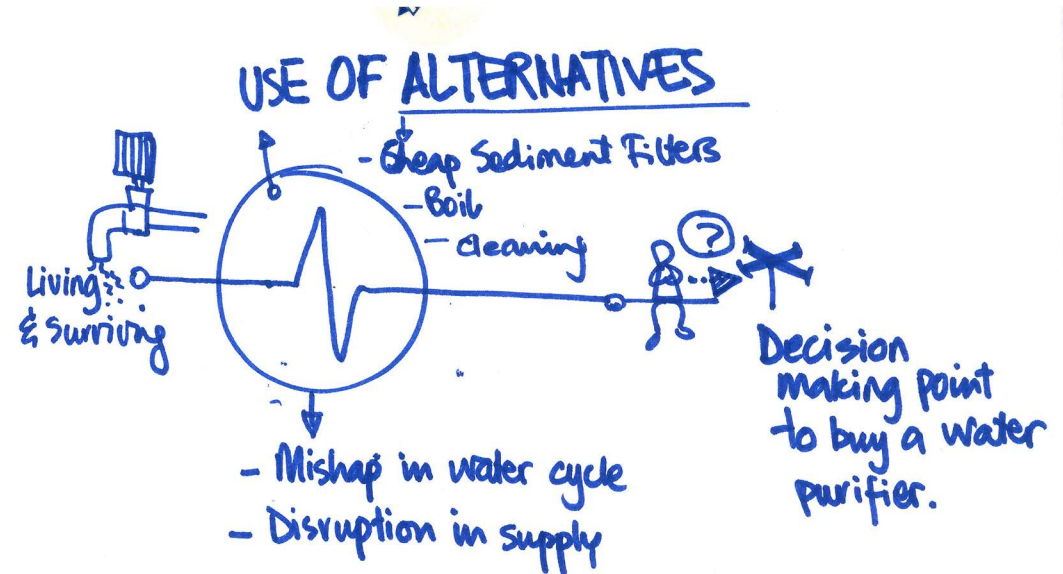 USE OF ALTERNATIVES
- Cheap Sediment Filters
- Boil
- cleaning
?
Living
& Surviving
Decision
making point
to buy a water
purifier.
- Mishap in water cycle
- Disruption in supply